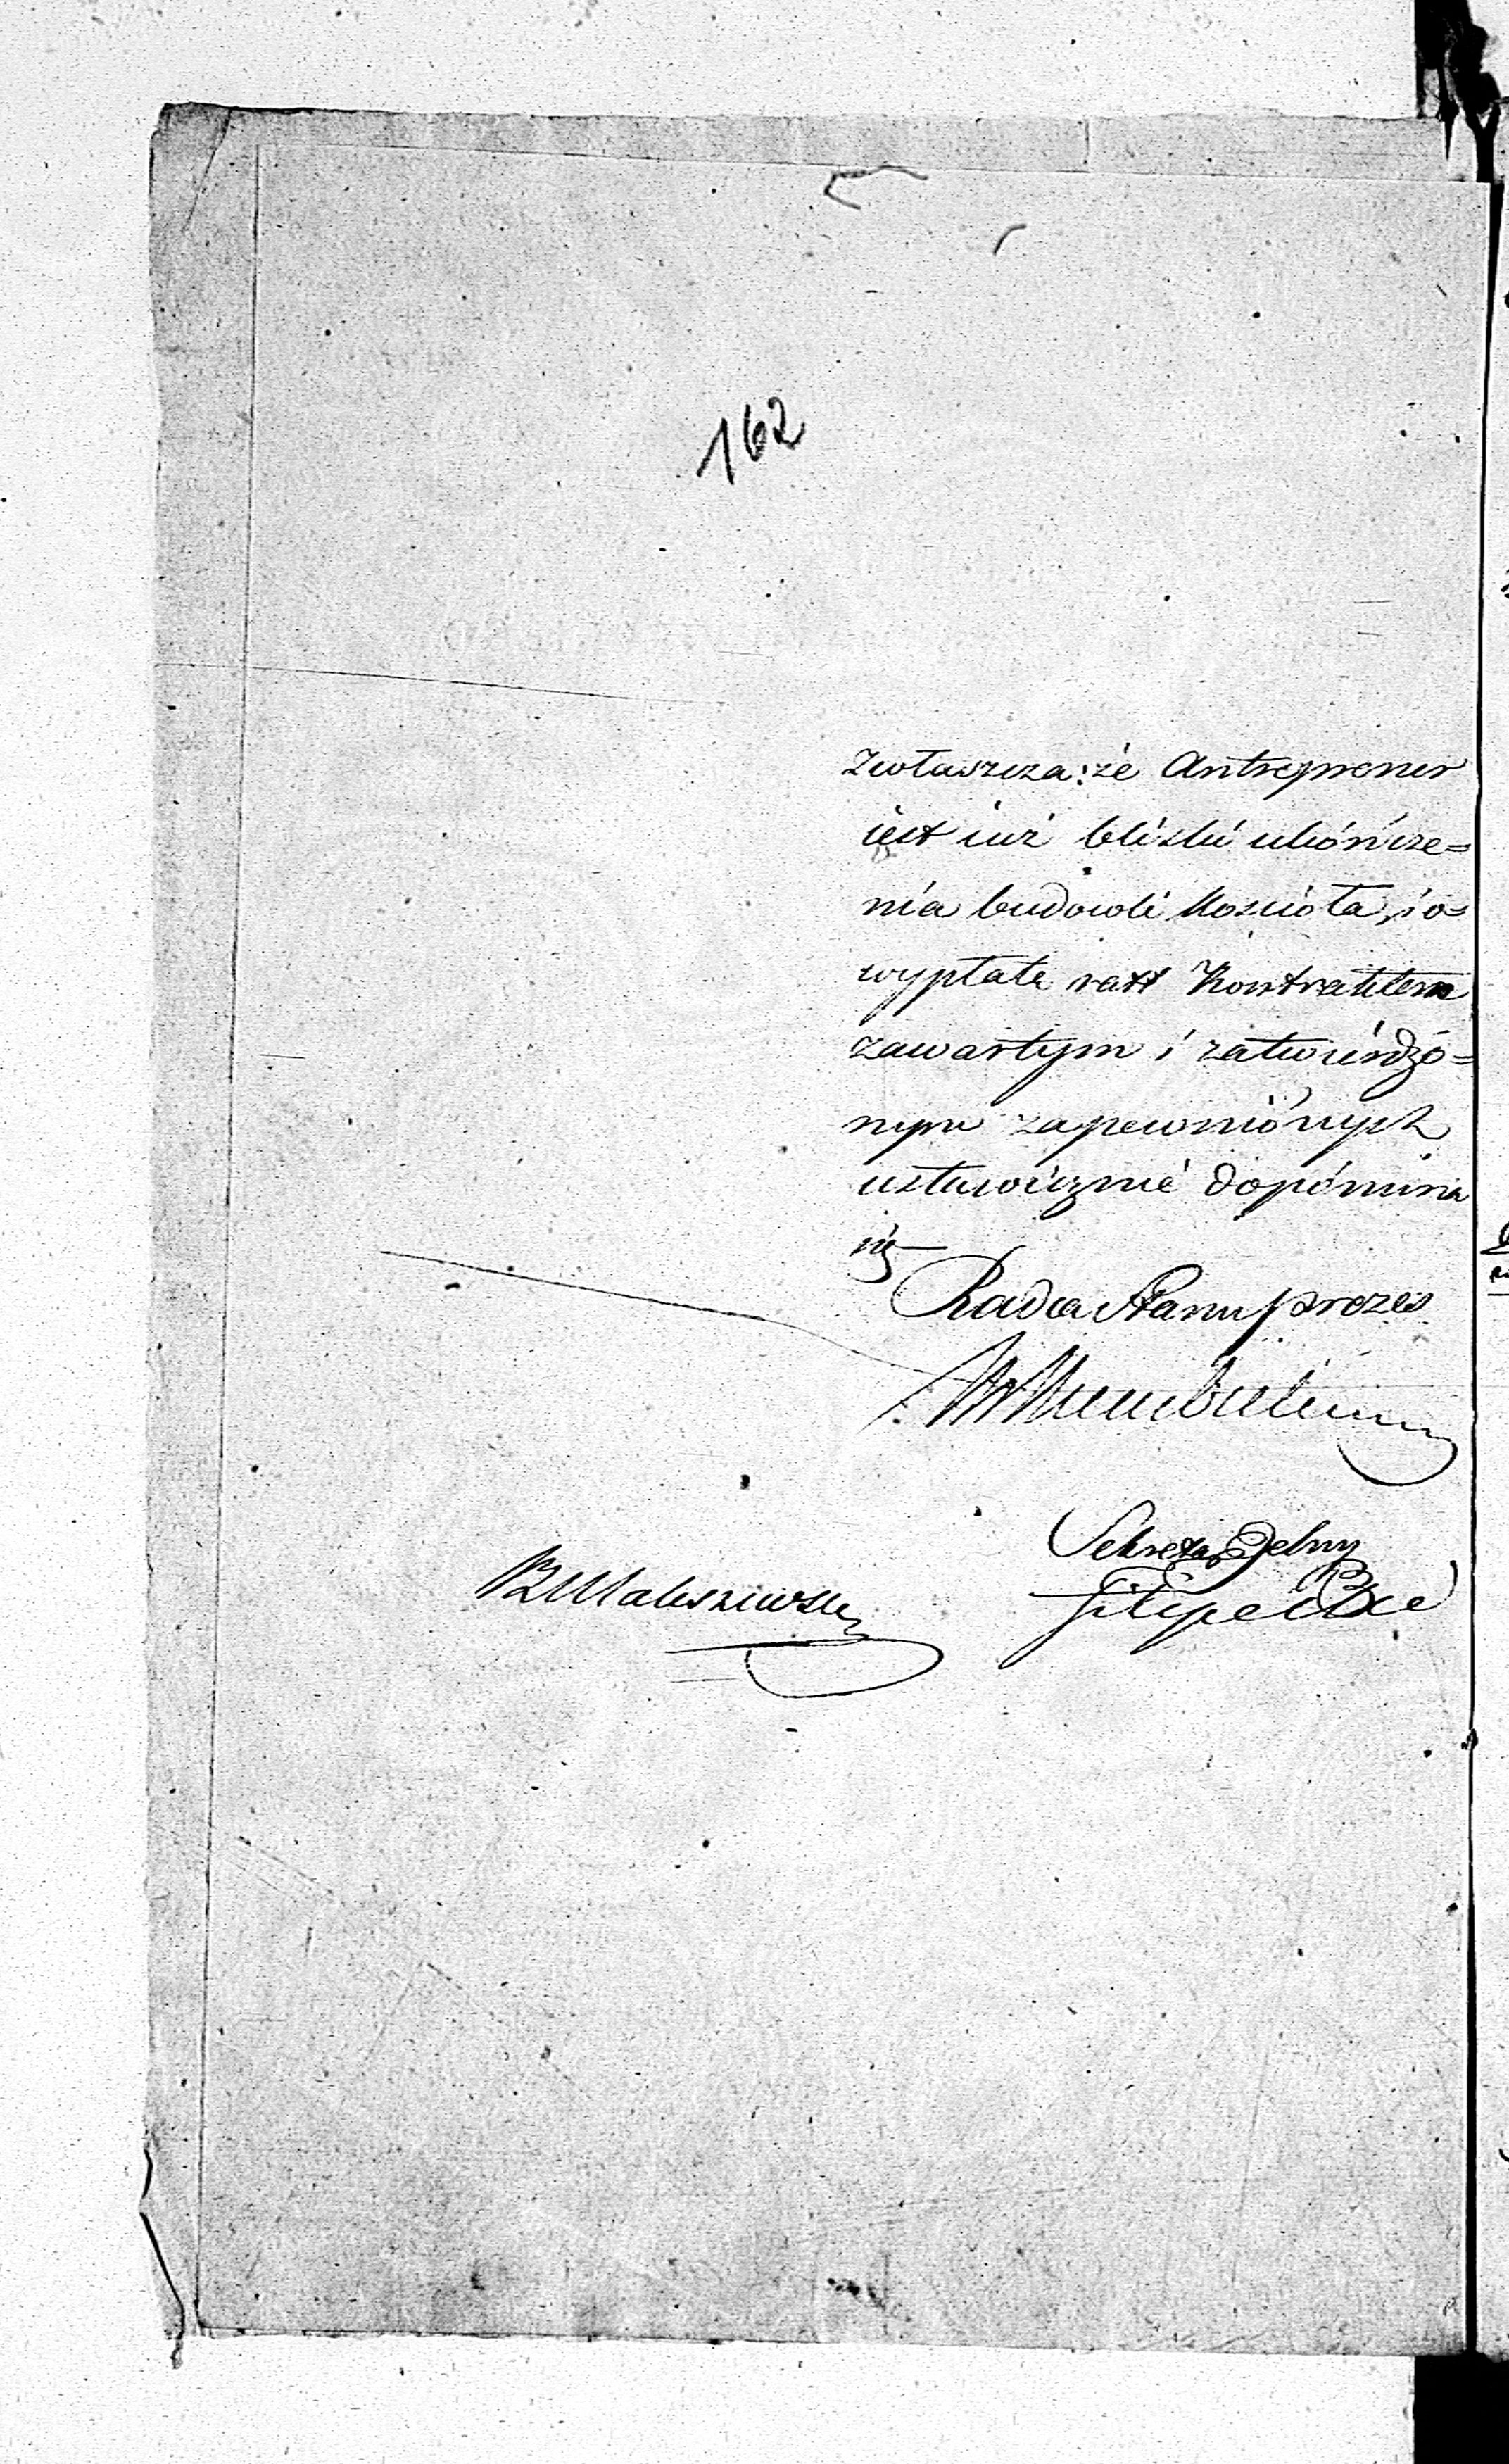 162
Zwłaszcza: że Antreprener
iest iuż bliski ukończe=
nia budowli Kościoła, i o=
wypłatę ratt Kontraktem
zawartym i zatwierdzo=
nym zapewnionych
ustawicznie dopomina
się
Radca Stanu prezes
Sekretarz Jelny
Filipecki
BMaleszewski